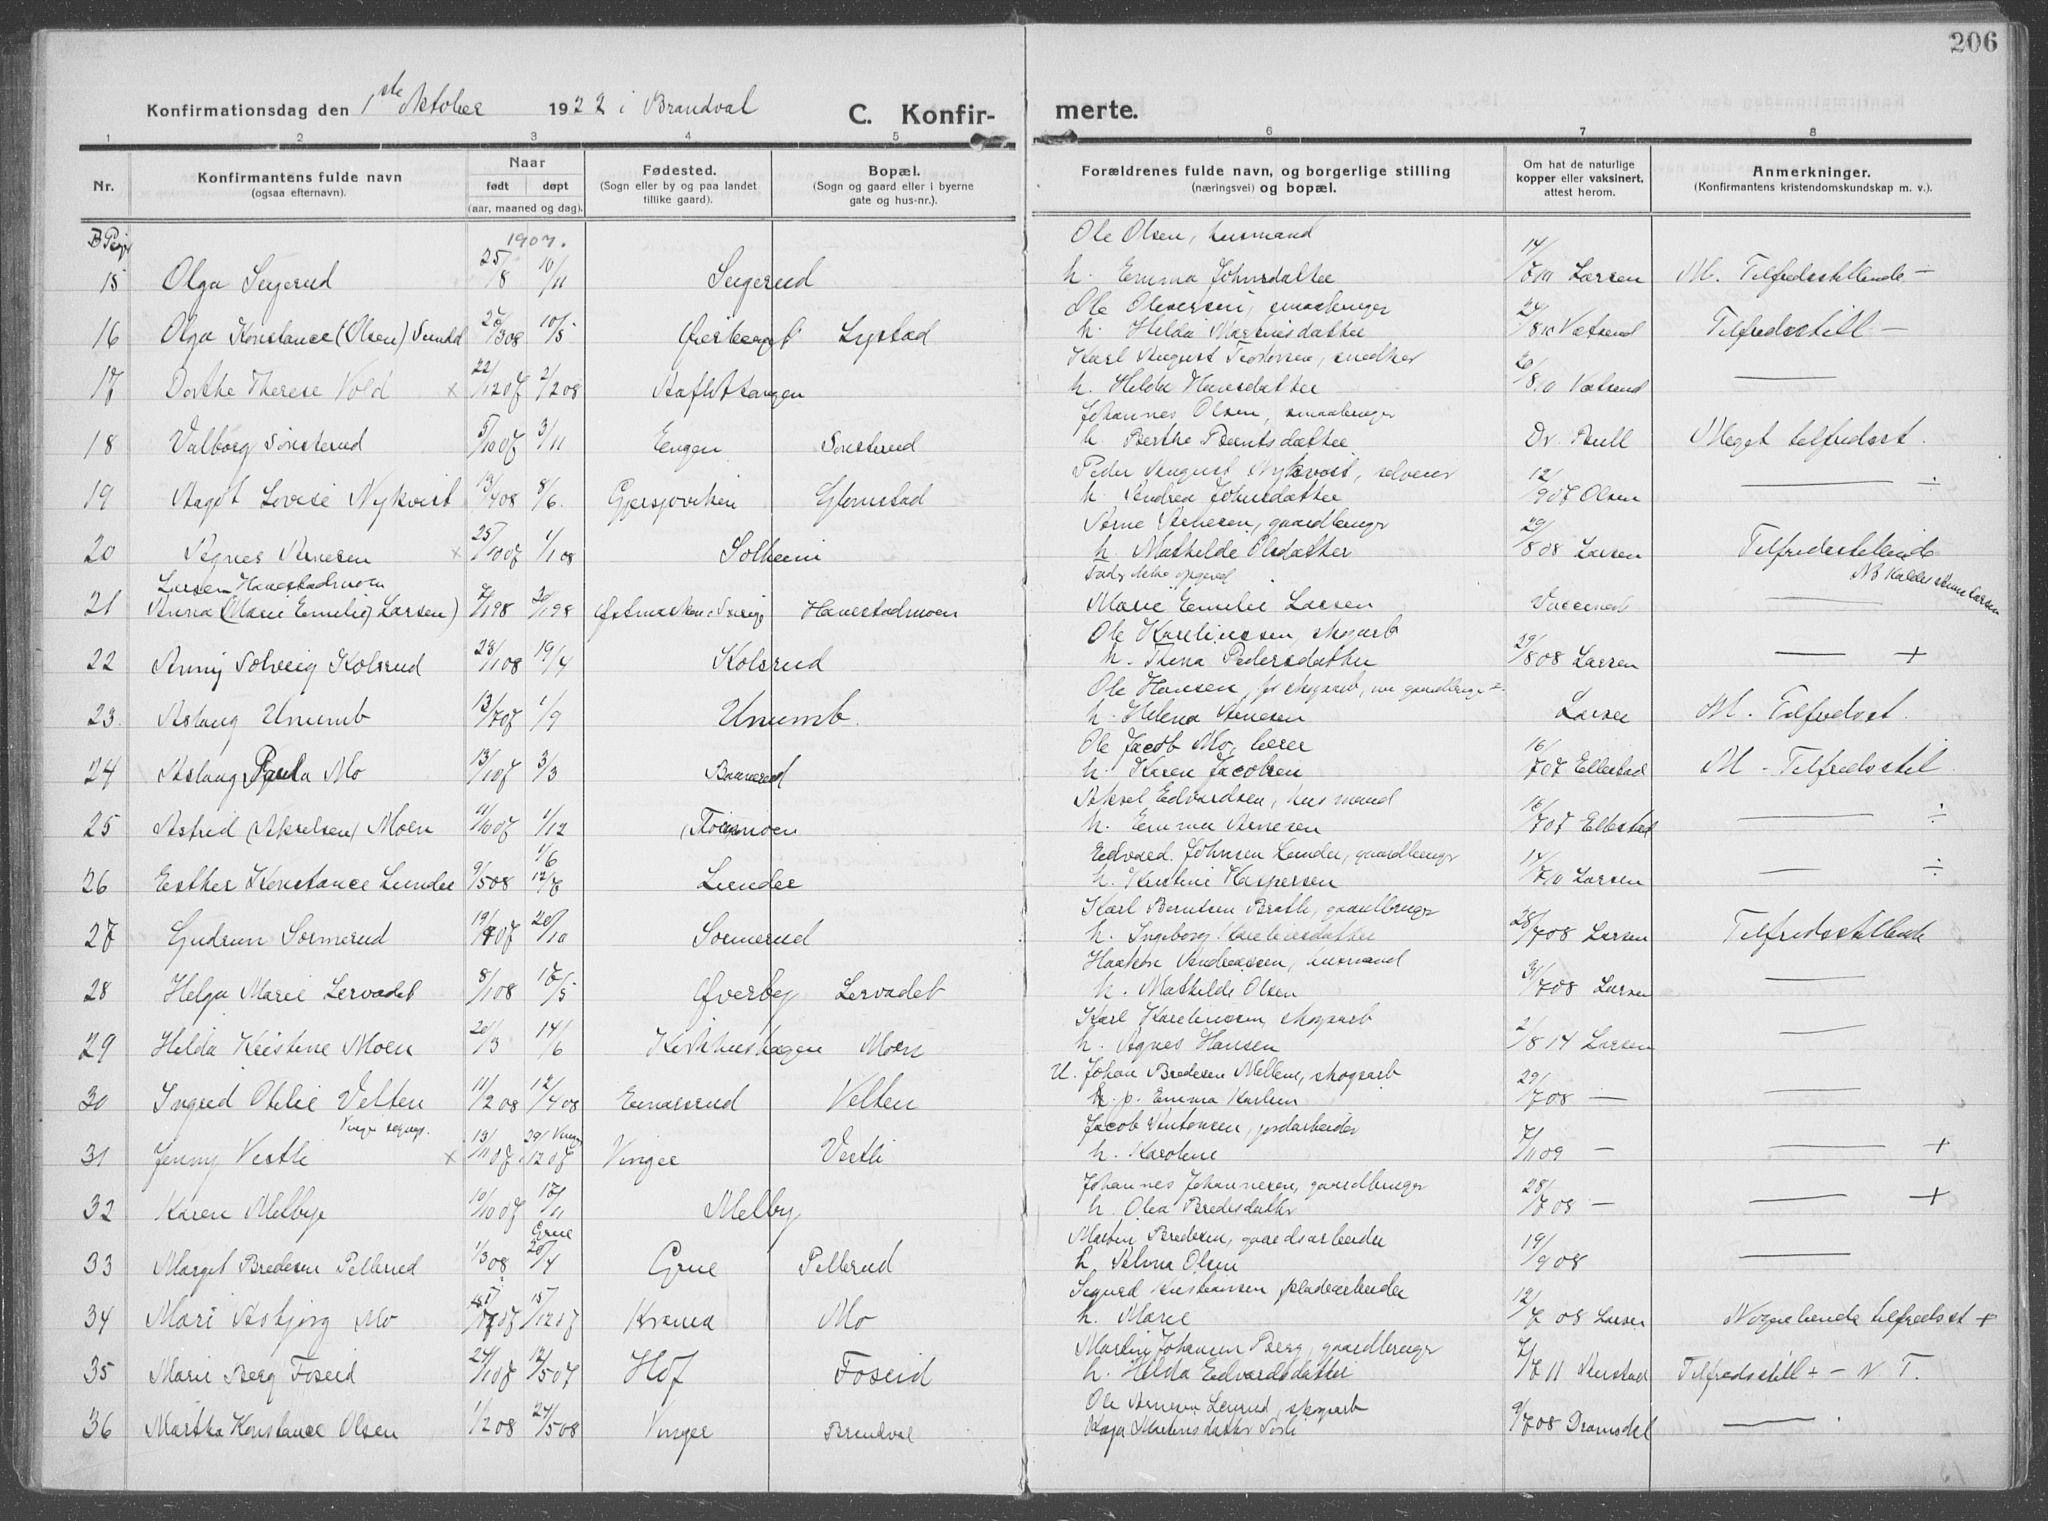 206
Konfirmationsdag den 1ste Oktober 1922 i Brandval
C. Konfir-
merte.
1 2 3 4 5 6 7 8
Nr.
Konfirmantens fulde navn
(ogsaa efternavn).
Naar
født døpt
(aar, maaned og dag).
Fødested.
(Sogn eller by og paa landet
tillike gaard).
Bopæl.
(Sogn og gaard eller i byerne
gate og hus-nr.).
Forældrenes fulde navn, og borgerlige stilling
(næringsvei) og bopæl.
Om hat de naturlige
kopper eller vaksinert,
attest herom.
Anmerkninger.
(Konfirmantens kristendomskundskap m. v.).
1907.
Ole Olsen, husmand
15 Olga Seigerud 25/8 10/11 Seigerud h. Emma Johnsdatter 14/7 10 Larsen M. Tilfredsstillende —
Ole Olsen, smaabruger
16 Olga Konstance (Olsen) 10/5 Lystad h. Hilda 24/8 10 Vatsend Tilfredsstill —
Karl August, snedker
17 Dorthe Therese Vold × 22/12 07 2/2 08 h. Hilda Hansdatter /8 10 Vatsend —
Johannes Olsen, smaabruger
18 Valborg Sønsterud 5/10 07 3/11 Engen Sønsterud h. Berthe Berntsdatter Dr. Bull Meget tilfredsst.
Peder August Nykvist, selveier
19 Aagot Lovise Nykvist 13/4 08 8/6. Gjersjøviken Glomstad h. Andrea Johnsdatter 12/9 07 Olsen — ÷
Arne Arnesen, gaardbruger
20 Agnes Arnesen × 25/10 07 1/1 08 Solheim h. Mathilde Olsdatter 29/8 08 Larsen Tilfredsstillende
Larsen Hanestadmoen
Fader ikke opgived
NB Kaldes Anna Larsen
21 Anna (Marie Emilie) Larsen) Hanestadmoen Marie Emilie Larsen —
Ole Karelinssen, skogarb
22 Anny Solveig Kolsrud 23/1 08 19/4 Kolsrud h. Tina Pedersdatter 29/8 08 Larsen — +
Ole Hansen, før skogarb, nu gaardbruger
23. Aslaug Unumb 13/7 07 1/9 Unumb. h. Helena Arnesen Larsen M. Tilfredsst.
Ole Jacob Mo, lærer
24 Aslaug Paula Mo 13/1 07 3/3 h. Karen Jacobsen 16/7 07 Ellestad M - Tilfredsstil
Aksel Edvardsen, husmand
25 Astrid (Akselsen) Moen 11/10 07 1/12 h. Emma Arnesen 16/7 07 Ellestad — ÷
1/6 Edvard Johnsen Lunder, gaardbruger
26 Esther Konstance Lunder 9/5 08 12/7 Lunder h. Kristine Kaspersen 14/7 10 Larsen — ÷
Karl Berntsen Brath, gaardbruger
27 Gudrun Sormerud 20/10 Sormerud h. Ingeborg Karelinsdatter 28/7 08 Larsen Tilfredsstillende
Haakon Andreassen, husmand
28 Helga Marie Lervadet 8/1 08 17/5 Øverby Lervadet h. Mathilde Olsen 31/7 08 Larsen —
Karl Karelinssen, skogarb
29 Hilda Kristine Moen 20/3 14/6 Moen h. Agnes Hansen 2/8 14 Larsen —
U. Johan Bredesen Mellem, skogsarb
30 Ingrid Otilie Velten 11/2 08 12/4 08 Einarsrud Velten p. Emma Karlsen 29/7 08 — —
Jacob Antonsen, jordarbeider
31 Jenny Vestli × 13/11 07. 29/12 07 Vinger Vestli h. Karoline 7/11 09 — — +
Johannes Johannesen, gaardbruger
32 Karen Melbye 10/10 07 17/11 Melby h. Olea Bredesdatter 28/7 08 — — +
Grue Martin Bredesen, gaardsarbeider
33 Margit Bredesen Pellerud 1/3 08 20/4 Grue Pellerud h. Alma Olsen 19/9 08 —
Sigurd Kristiansen,
34 Mari Asbjørg Mo 15/12 07 Mo h. Marie 12/7 08 Larsen Nogenlunde tilfredsst +
Martin Johansen Berg, gaardbruger
35 Marie Berg Foseid 24/1 07 12/5 07 Hof Foseid h. Hilda Edvardsdatter 7/7 11 Tilfredsstill ÷ — N. T.
Ole Arnesen, skogarb
36 Martha Konstance Olsen 1/2 08 24/5 08 Vinger Brandval Kaja Martinsdatter 9/7 08 —